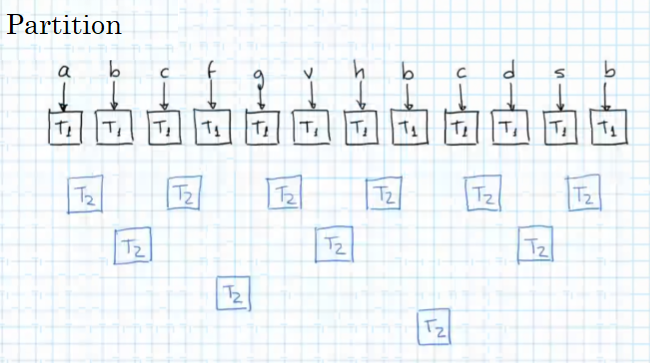 Partition
a b c f g v h b c d s b
T1 T1 T1 T1 T1 T1 T1 T1 T1 T1 T1 T1
T2 T2 T2 T2 T2 T2
T2 T2 T2
T2
T2